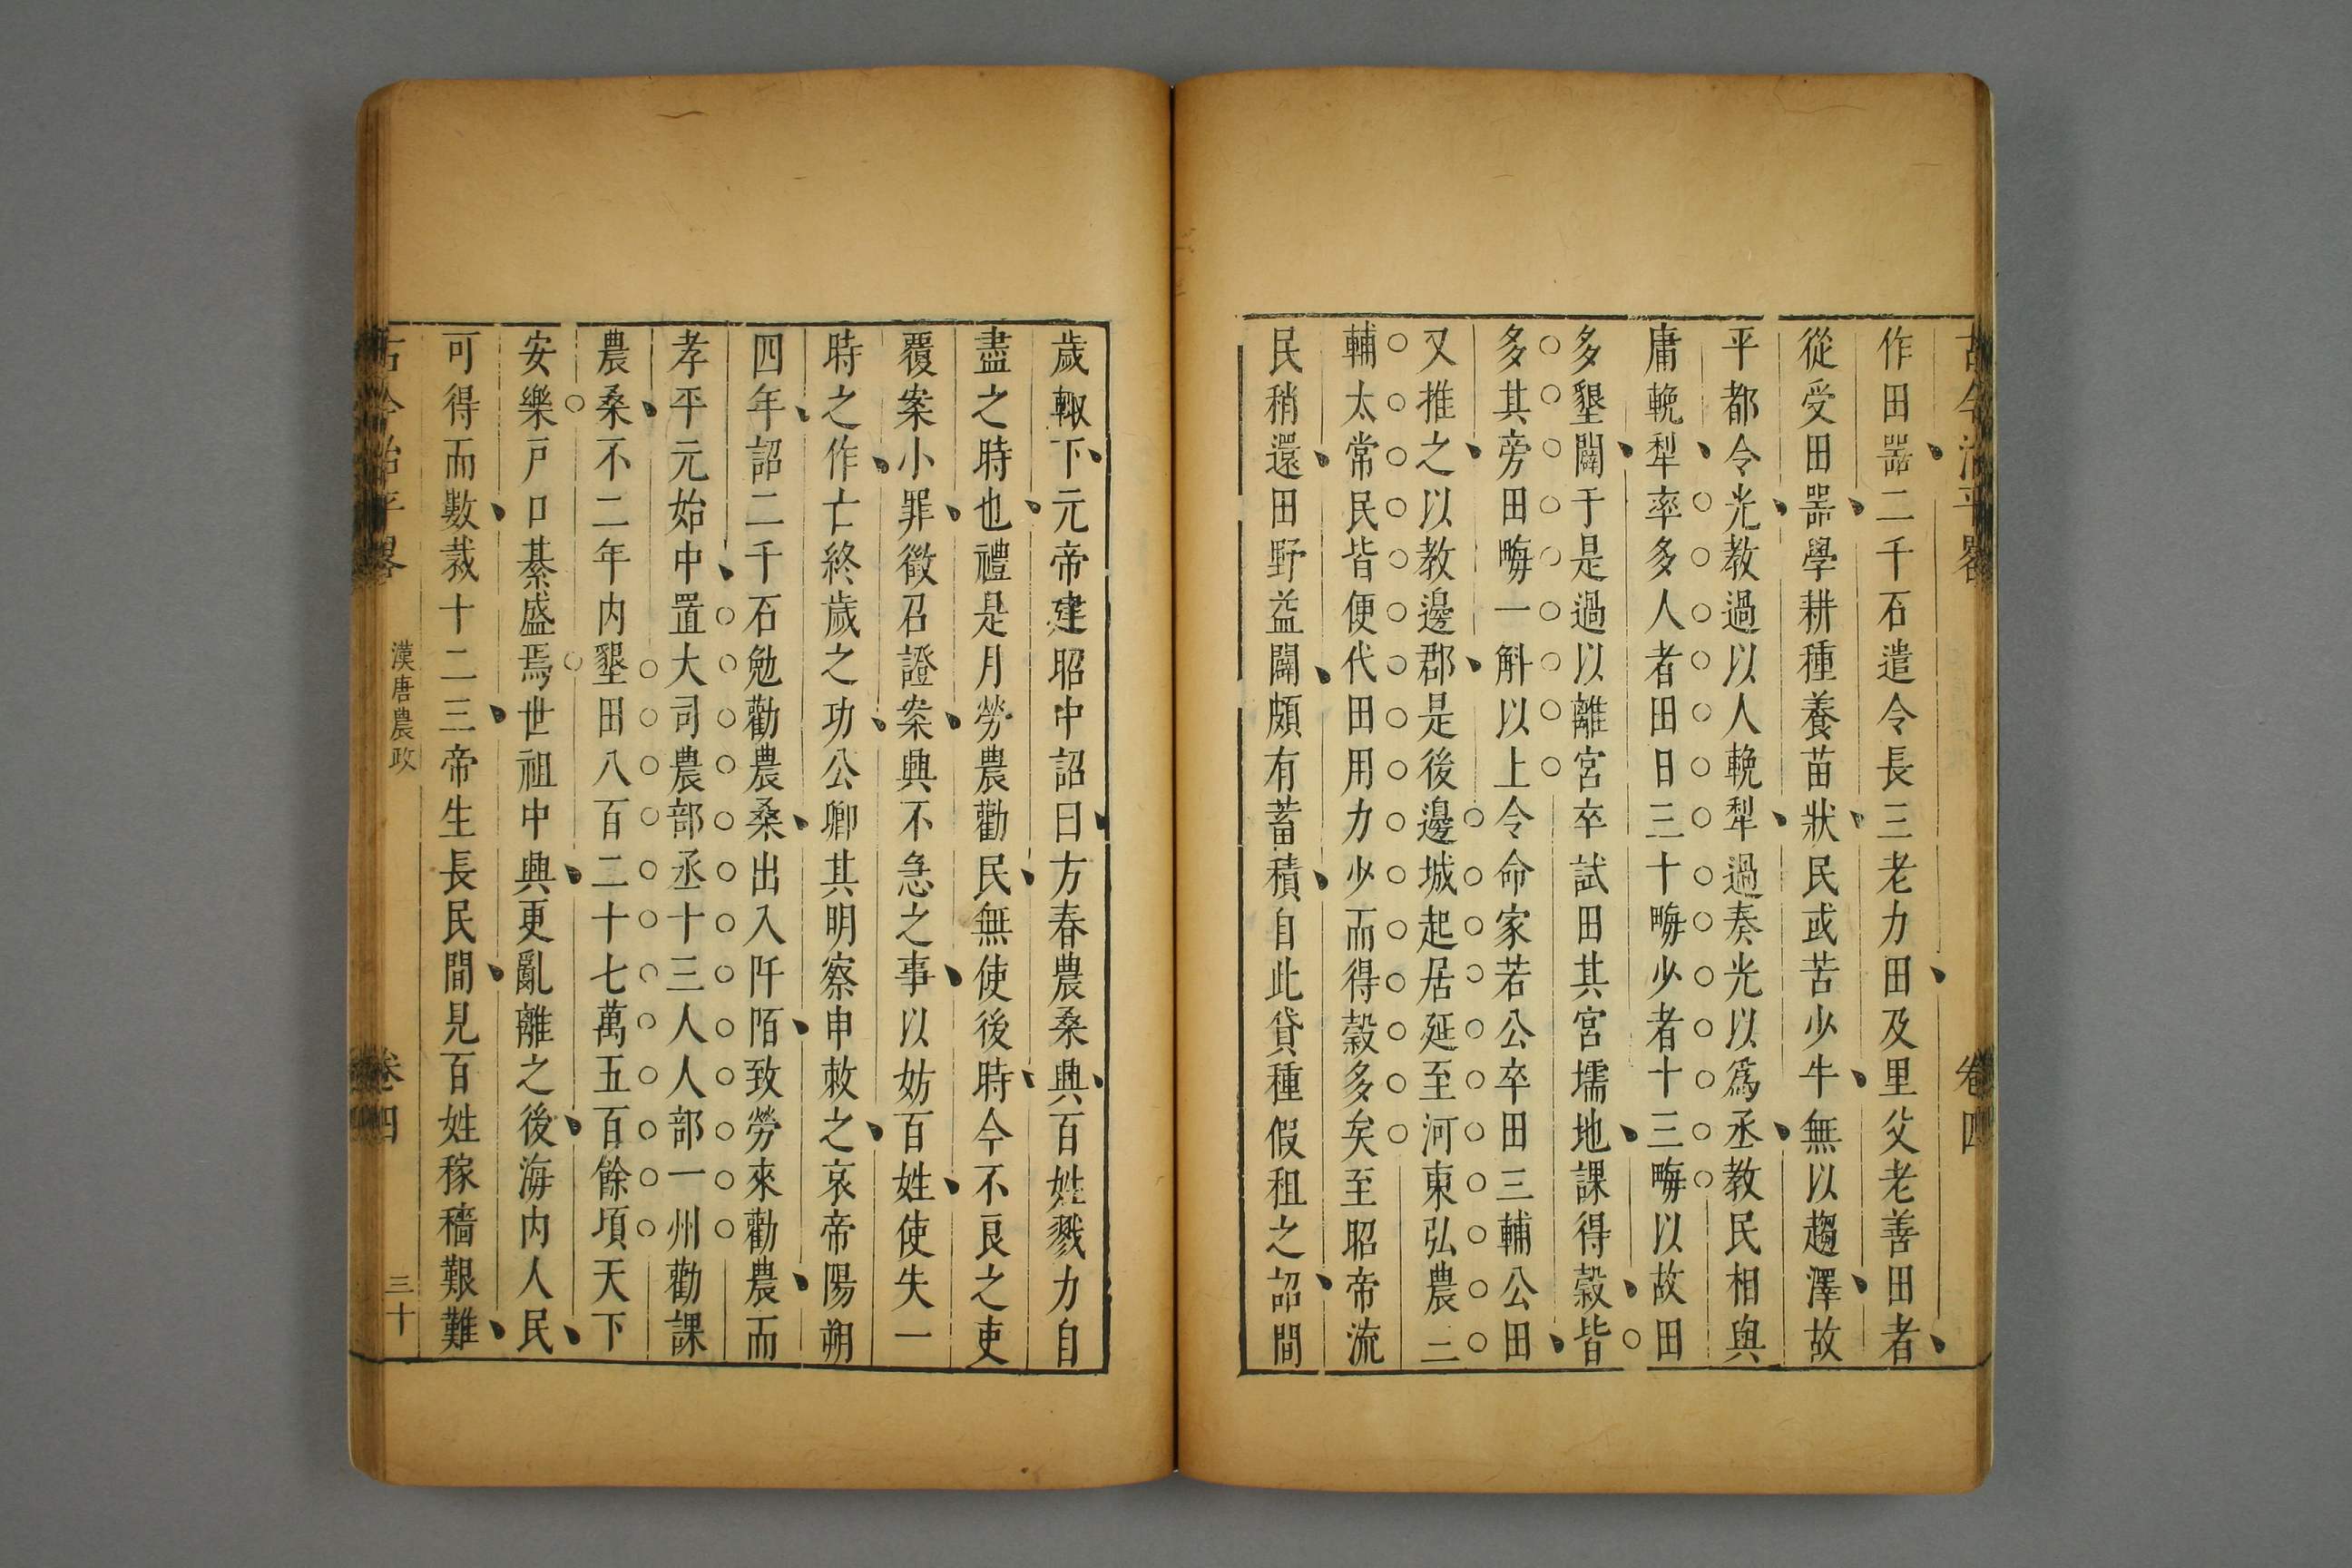 古今治平畧
卷四
作田噐二千石遣令長三老力田及里父老善田者
從受田噐學耕種養苗狀民或苦少牛無以趨澤故
平都令光教過以人輓犁過奏光以爲丞教民相與
庸輓犁率多人者田日三十畮少者十三畮以故田
多墾闢于是過以離宮卒試田其宮壖地課得穀皆
多其旁田畮一斛以上令命家若公卒田三輔公田
又推之以教邊郡是後邊城起居延至河東弘農三
輔太常民皆便代田用力少而得穀多矣至昭帝流
民稍還田野益闢頗有蓄積自此貸種假租之詔間
歲輙下元帝建昭中詔曰方春農桑興百姓戮力自
盡之時也禮是月勞農勸民無使後時今不良之吏
覆案小罪徵召證案興不急之事以妨百姓使失一
時之作亡終歲之功公卿其明察申敕之哀帝陽朔
四年詔二千石勉勸農桑出入阡陌致勞來勸農而
孝平元始中置大司農部丞十三人人部一州勸課
農桑不二年内墾田八百二十七萬五百餘頃天下
安樂戸口綦盛焉世祖中興更亂離之後海内人民
可得而數裁十二三帝生長民間見百姓稼穡艱難
古今治平畧
漢唐農政
卷四
三十